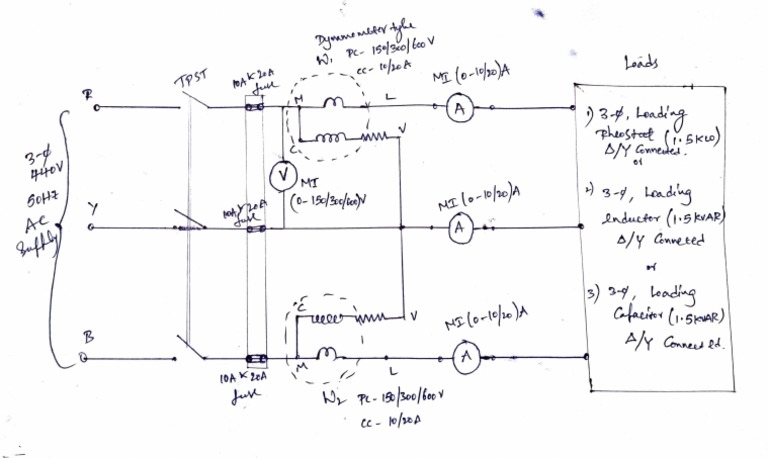 Dynamometer type
W1 PC - 150/300/600 V
CC - 10/20A
TPST
10A K 20A
fuse
MI (0-10/20)A
Loads
R
M
L
A
C
V
1) 3-ϕ, Loading
Rheostat (1.5KW)
Δ/Y Connected.
or
3-ϕ
440V
50HZ
AC
Supply
V
MI
(0-150/300/600)V
Y
20A
fuse
MI (0-10/20)A
A
2) 3-ϕ, Loading
Inductor (1.5KVAR)
Δ/Y Conneted
or
3) 3-ϕ, Loading
Capacitor (1.5KVAR)
Δ/Y Connected.
C
V
MI (0-10/20)A
B
M
L
A
10A K 20A
fuse
W2 PC - 150/300/600 V
CC - 10/20A